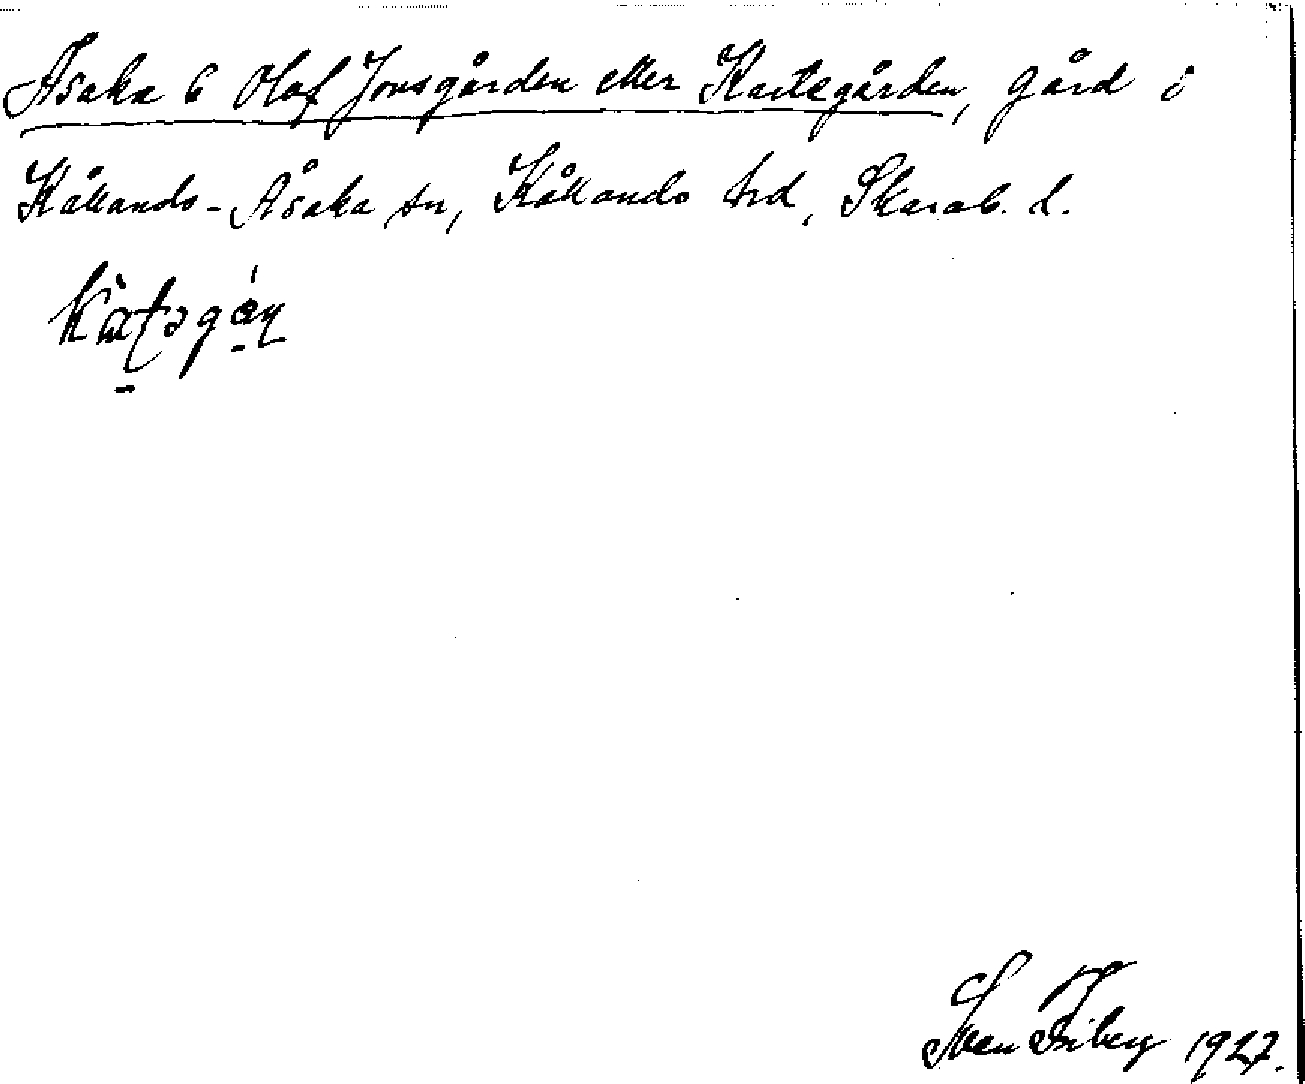 Åsaka 6 Olof Jonsgården eller Kartegården, gård i
Kåkands-Åsaka sn, Kåkands hd, Skarab. l.
Sven Friberg 1927.